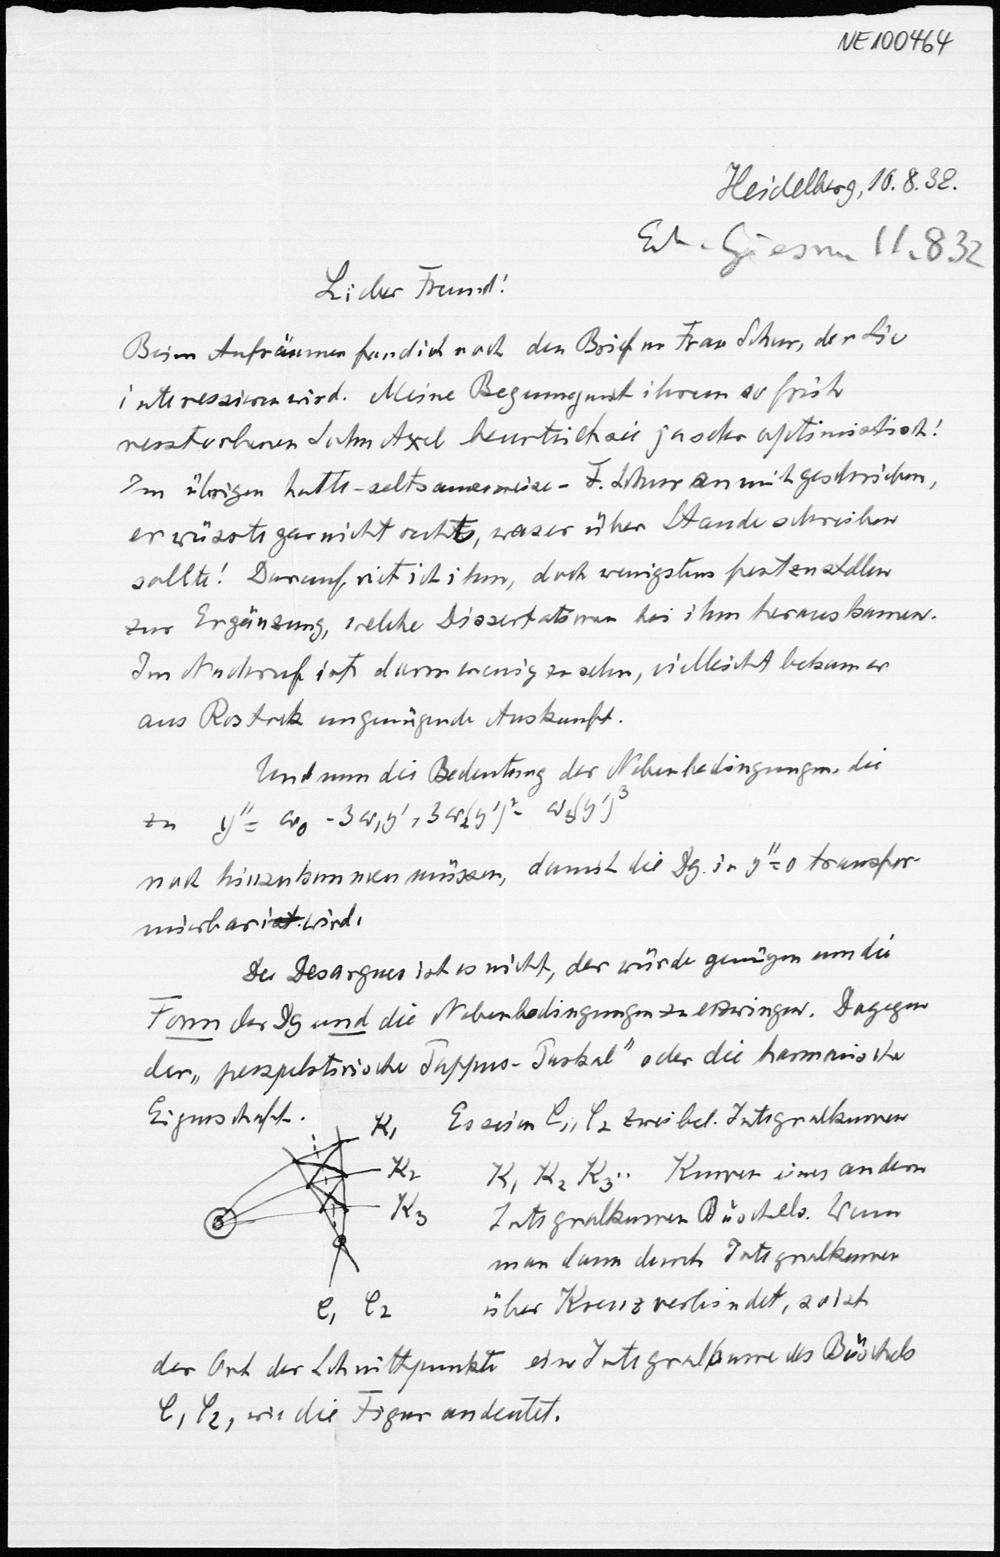 NE100464
Heidelberg, 10.8.32.
11.8.32
Lieber Freund!
Beim Aufräumen fand ich noch den Brief von Frau Schur, der Sie
interessieren wird. Meine Begegnung mit ihrem so früh
verstorbenen Sohn Axel beurteilt sie ja sehr optimistisch!
Im übrigen hatte - seltsamerweise - F. Schur an mich geschrieben,
er wüsste gar nicht recht, was er über Staude schreiben
sollte! Darauf riet ich ihm, doch wenigstens festzustellen
zur Ergänzung, welche Dissertationen bei ihm herauskamen.
Im Nachruf ist davon wenig zu sehen, vielleicht bekam er
aus Rostock ungenügende Auskunft.
Und nun die Bedeutung der Nebenbedingungen, die
zu y'' = ω₀ - 3ω₁y' + 3ω₂(y')² - ω₃(y')³
noch hinzukommen müssen, damit die Dg. in y''=0 transfor-
mierbar ist wird.
Der Desargues ist es nicht, der würde genügen um die
Form der Dg und die Nebenbedingungen zu erzwingen. Dagegen
der „perspektivische Pappus-Paskal" oder die harmonische
Eigenschaft. Es seien C₁, C₂ zwei bel. Integralkurven
K₁
K₂
K₃
K₁ K₂ K₃.. Kurven eines andern
Integralkurven Büschels. Wenn
man dann durch Integralkurven
über Kreuz verbindet, so ist
C₁ C₂
der Ort der Schnittpunkte eine Integralkurve des Büschels
C₁ C₂, wie die Figur andeutet.